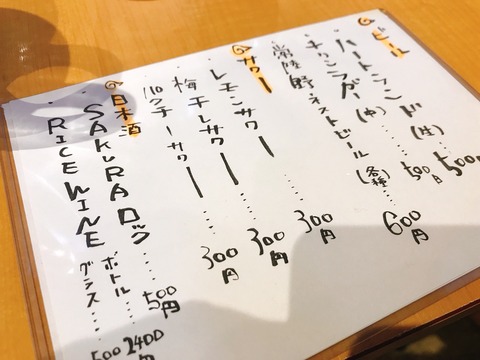 ビール
ハートランド(生)……500円
キリンラガー(中)……500円
常陸野ネストビール(各種)……600円
サワー
レモンサワー……300円
梅干しサワー……300円
パクチーサワー……300円
日本酒
SAKURAロック……500円
RICE WINE ボトル……2400円
グラス……500